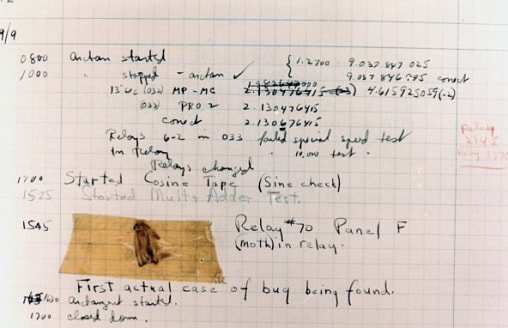 9/9
0800 Antan started { 1.2700 9.037 847 025
1000 " stopped - antan ✓ 9.037 846 795 correct
13"uc (032) MP-MC 2.130476415 (-3) 4.615925059(-2)
(033) PRO 2 2.130476415
correct 2.130676415
Relays 6-2 in 033 failed special speed test
In Relay " 10.000 test.
Relay
Relays changed
1700 Started Cosine Tape (Sine check)
1525 Started Mult+Adder Test.
1545 Relay #70 Panel F
(Moth) in relay.
First actual case of bug being found.
1630 antangent started.
1700 closed down.